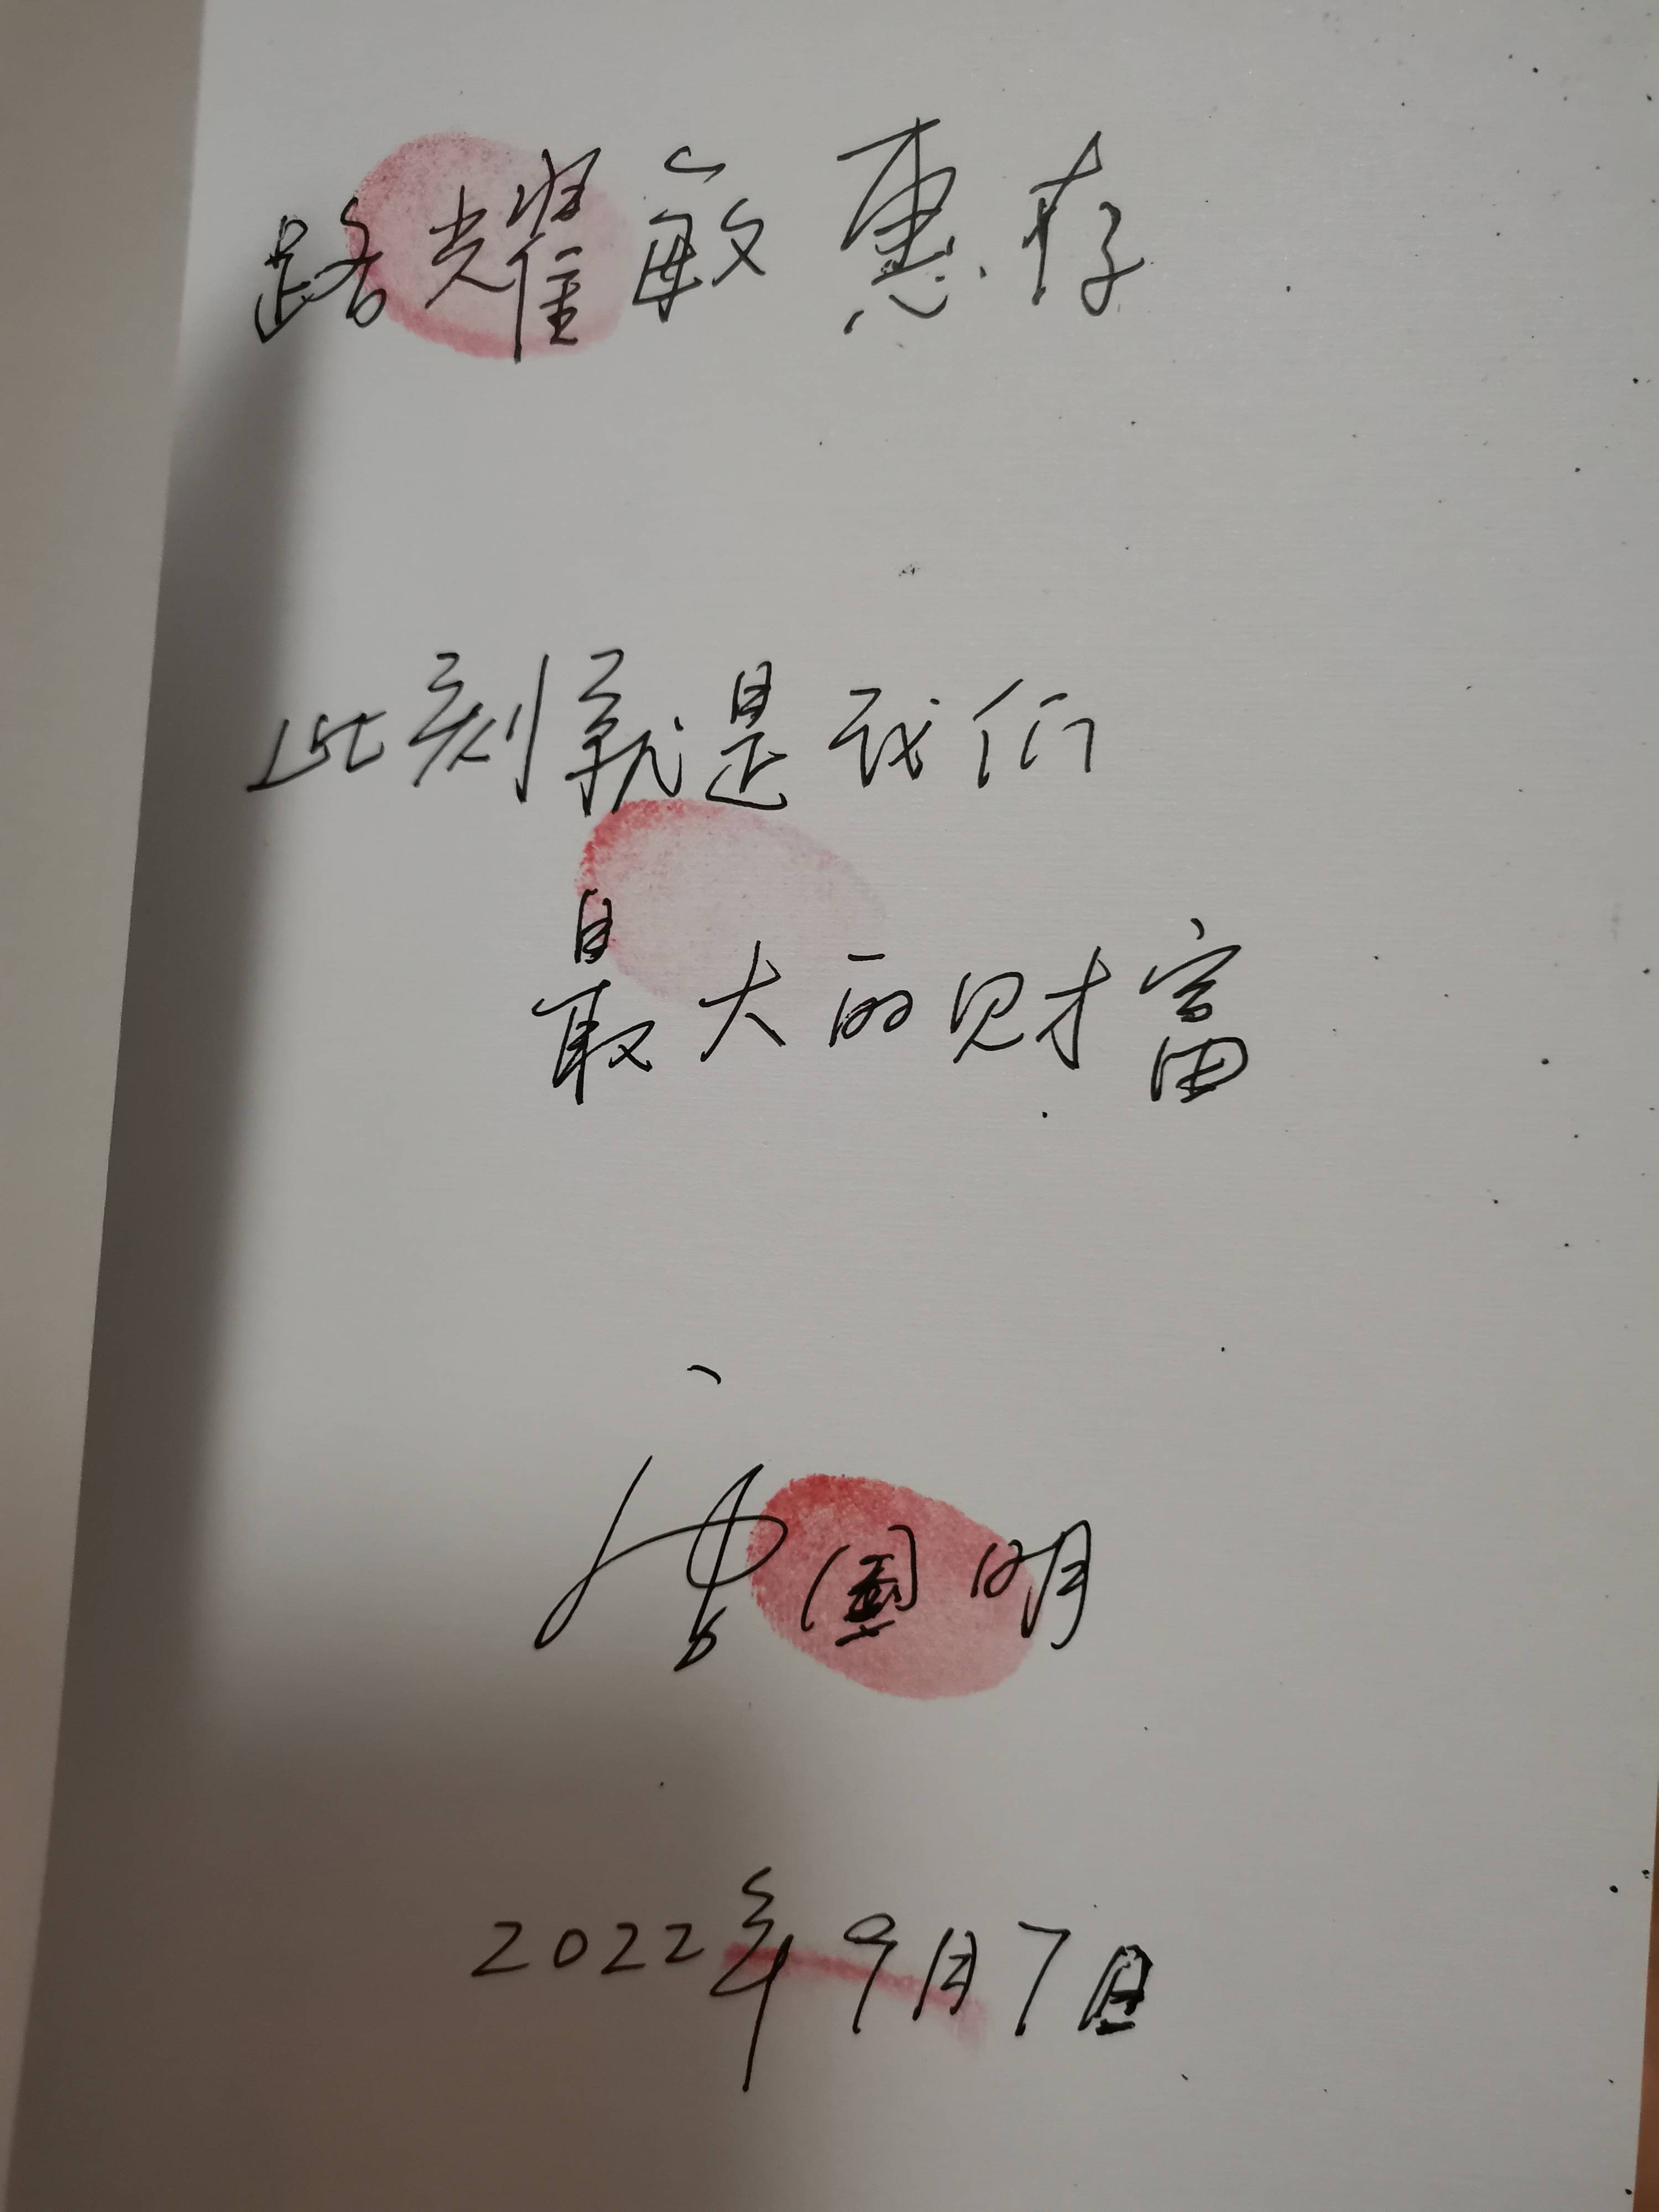 路耀敏惠存
此刻就是我们
最大的财富
唐国明
2022年9月7日